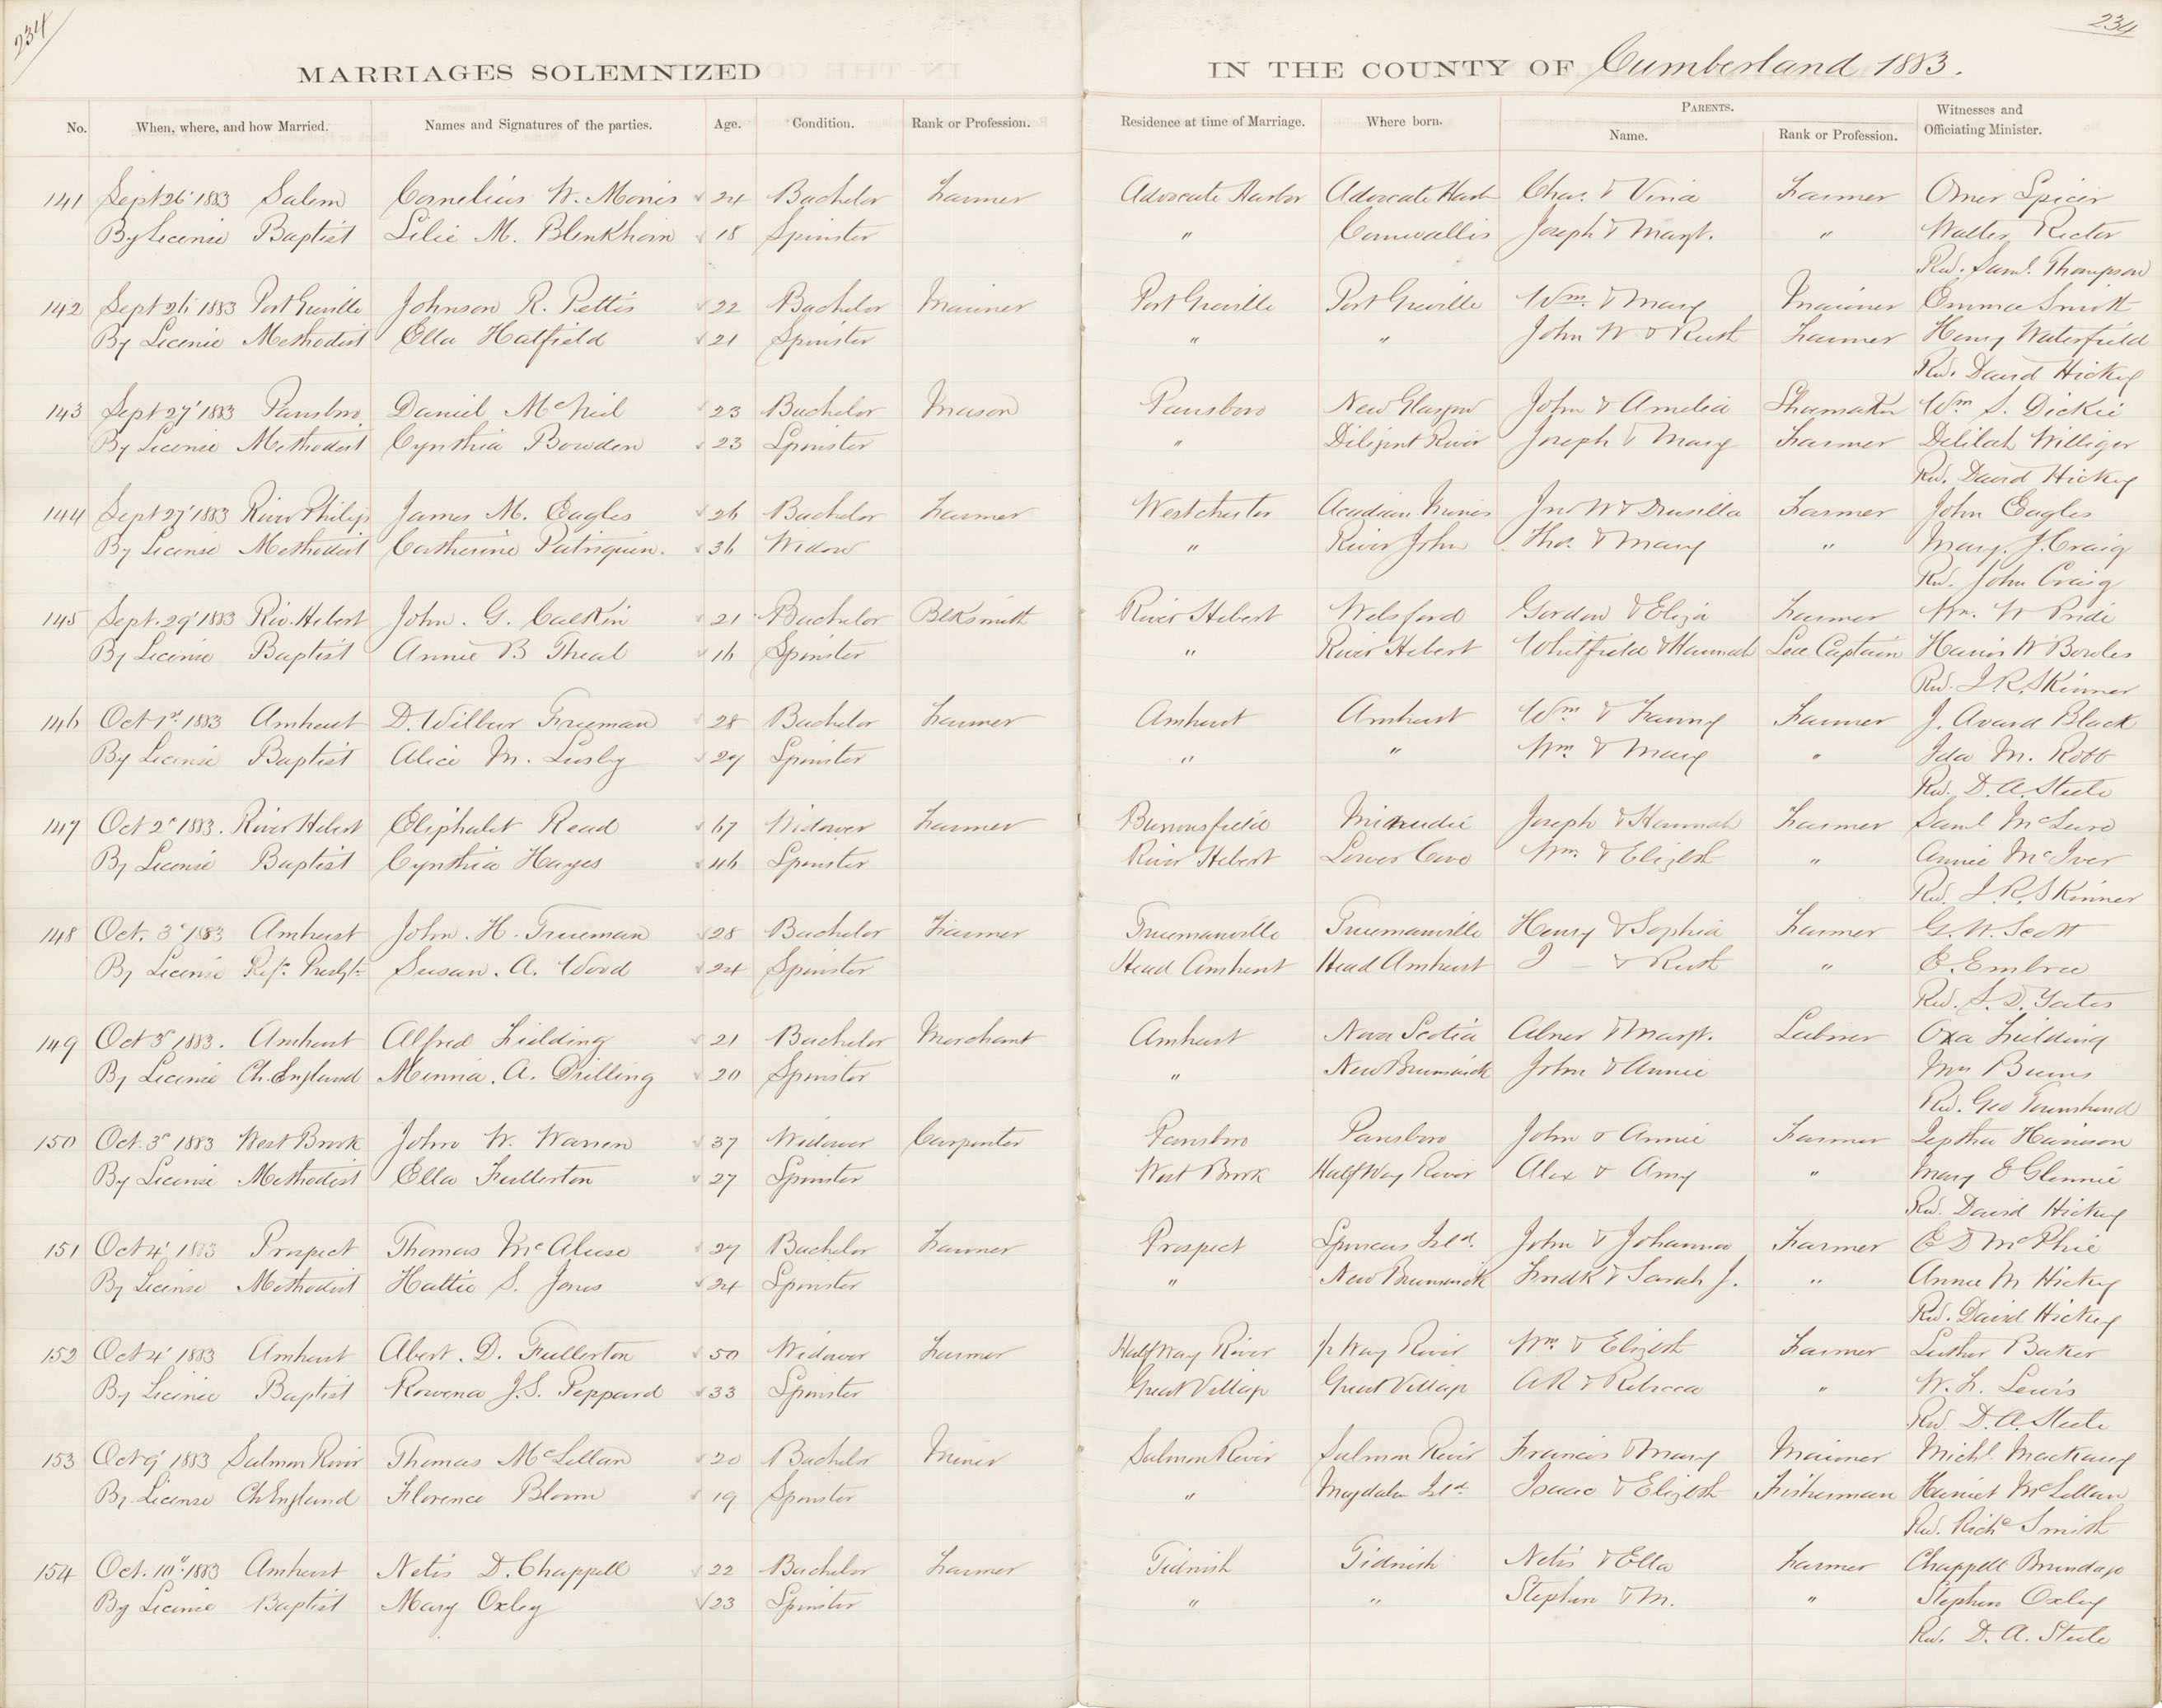 234
234
MARRIAGES SOLEMNIZED IN THE COUNTY OF Cumberland 1883.
No. When, where, and how Married. Names and Signatures of the parties. Age. Condition. Rank or Profession. Residence at time of Marriage. Where born. PARENTS. Name. Rank or Profession. Witnesses and Officiating Minister.
141 Sept 26' 1883 Salem Cornelius W. Morris 24 Bachelor Farmer Advocate Harbor Advocate Harb Chas. & Vina Farmer Omer Spicer
By License Baptist Lilie M. Blenkhorn 18 Spinster " Cornwallis Joseph & Margt. " Walter Rector
Rev. Saml. Thompson
142 Sept 26 1883 Port Greville Johnson R. Pettis 22 Bachelor Mariner Port Greville Port Greville Wm. & Mary Mariner Emma Smith
By License Methodist Ella Hatfield 21 Spinster " " John W & Ruth Farmer Henry Waterfield
Rev. David Hickey
143 Sept 27' 1883 Parrsboro Daniel McNeil 23 Bachelor Mason Parrsboro New Glasgow John & Amelia Shumaker Wm S. Dickie
By License Methodist Cynthia Bowden 23 Spinster " Diligent River Joseph & Mary Farmer Delilah Williger
Rev. David Hickey
144 Sept 27' 1883 River Philip James M. Eagles 26 Bachelor Farmer Westchester Acadian Mines Jno W & Drusilla Farmer John Eagles
By License Methodist Catherine Patriquin. 36 Widow " River John Thos. & Mary " Mary J. Craig
Rev. John Craig
145 Sept. 29' 1883 Riv. Hebert John. G. Calkin 21 Bachelor Blksmith River Hebert Welsford Gordon & Eliza Farmer Wm. W Pride
By License Baptist Annie B Theal 16 Spinster " River Hebert Whitfield & Hannah Sea Captain Harris W Bowles
Rev. J. R. Skinner
146 Oct 1st 1883 Amherst D. Wilbur Freeman 28 Bachelor Farmer Amherst Amherst Wm & Fanny Farmer J. Avard Black
By License Baptist Alice M. Lusby 29 Spinster " " Wm. & Mary " Ida M. Robb
Rev. D. A. Steele
147 Oct 2' 1883. River Hebert Eliphalet Read 67 Widower Farmer Barronsfield Minudie Joseph & Hannah Farmer Saml
By License Baptist Cynthia Hayes 46 Spinster River Hebert Lower Cove Wm. & Elizbth " Annie McIver
Rev. J. R. Skinner
148 Oct. 3' 1883 Amherst John. H. Trueman 28 Bachelor Farmer Truemanville Truemanville Henry & Sophia Farmer G. W. Scott
By License Ref. Presbytn Susan. A. Wood 24 Spinster Head Amherst Head Amherst J — & Ruth " E. Embree
Rev. S. D. Yates
149 Oct 3' 1883. Amherst Alfred Fielding 21 Bachelor Merchant Amherst Nova Scotia Abner & Margt. Labrer Oxa Fielding
By License Ch. England Minnia. A. Drilling 20 Spinster " New Brunswick John & Annie Mrs Burns
Rev. Geo Townshend
150 Oct. 3' 1883 West Brook John W. Warren 37 Widower Carpenter Parrsboro Parrsboro John & Annie Farmer Jeptha Harrison
By License Methodist Ella Fullerton 27 Spinster West Brook Half Way River Alex & Amy " Mary E Glennie
Rev. David Hickey
151 Oct 4' 1883 Prospect Thomas McAleese 27 Bachelor Farmer Prospect Spencers Isld. John & Johanna Farmer E D McPhie
By License Methodist Hattie S. Jones 24 Spinster " New Brunswick Fredk & Sarah J. " Annie M Hickey
Rev. David Hickey
152 Oct 4' 1883 Amherst Abert. D. Fullerton 50 Widower Farmer Half Way River ½ Way River Wm. & Elizbth Farmer Luther Baker
By License Baptist Rowena J. S. Peppard 33 Spinster Great Village Great Village A R & Rebecca " W. F. Lewis
Rev. D. A. Steele
153 Oct 9' 1883 Salmon River Thomas McLellan 20 Bachelor Miner Salmon River Salmon River Francis & Mary Mariner Michl.
By License Ch England Florence Bloom 19 Spinster " Magdalen Isld. Isaac & Elizbth Fisherman Harriet McLellan
Rev. Richd Smith
154 Oct. 10" 1883 Amherst Netis D. Chappell 22 Bachelor Farmer Tidnish Tidnish Netis & Ella Farmer Chappell Brundage
By License Baptist Mary Oxley 23 Spinster " " Stephen & M. " Stephen Oxley
Rev. D. A. Steele